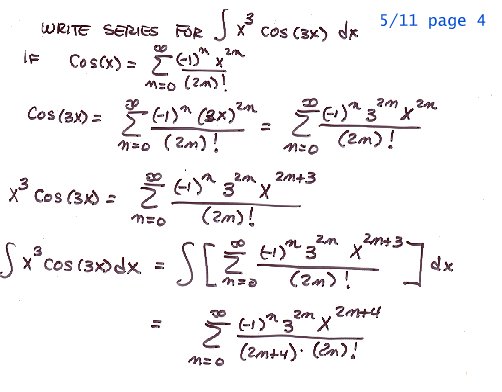 WRITE SERIES FOR ∫ x³ cos(3x) dx 5/11 page 4
IF Cos(x) = ∞∑n=0 (-1)ⁿ x²ⁿ / (2n)!
Cos(3x) = ∞∑n=0 (-1)ⁿ (3x)²ⁿ / (2n)! = ∞∑n=0 (-1)ⁿ 3²ⁿ x²ⁿ / (2n)!
x³ Cos(3x) = ∞∑n=0 (-1)ⁿ 3²ⁿ x²ⁿ⁺³ / (2n)!
∫ x³ cos(3x) dx = ∫ [ ∞∑n=0 (-1)ⁿ 3²ⁿ x²ⁿ⁺³ / (2n)! ] dx
= ∞∑n=0 (-1)ⁿ 3²ⁿ x²ⁿ⁺⁴ / (2n+4)·(2n)!